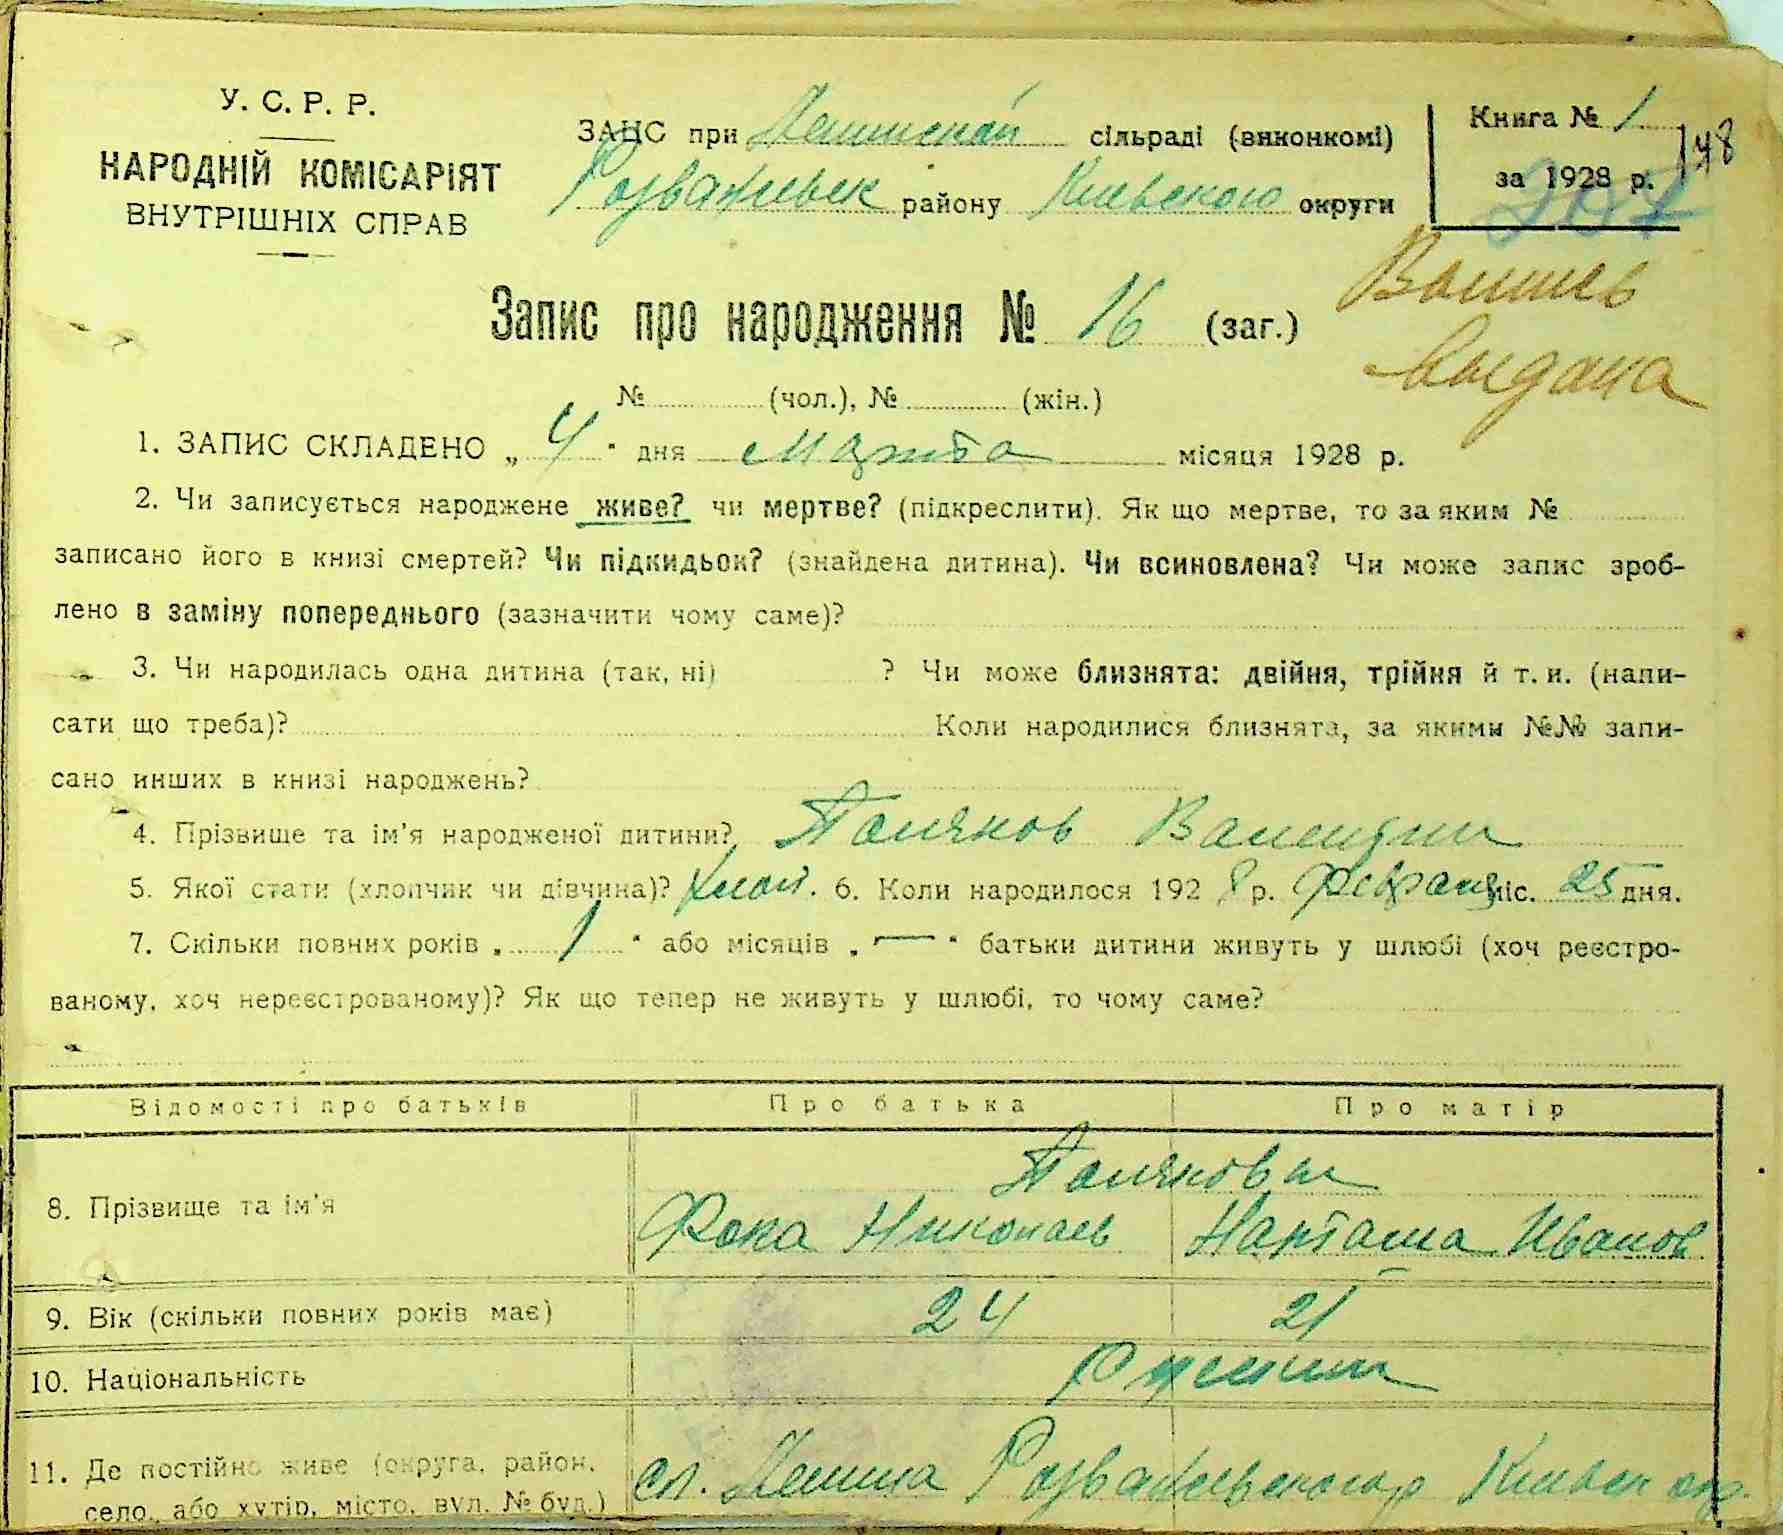 У. С. Р. Р.
НАРОДНІЙ КОМІСАРІЯТ
ВНУТРІШНІХ СПРАВ
ЗАЦС при Ленинской сільраді (виконкомі)
Розважевск району Киевского округи
Книга № 1
за 1928 р.
148
Запис про народження № 16 (заг.)
Выпись
выдана
№ (чол.), № (жін.)
1. ЗАПИС СКЛАДЕНО „ 4 " дня Марта місяця 1928 р.
2. Чи записується народжене живе? чи мертве? (підкреслити). Як що мертве, то за яким №
записано його в книзі смертей? Чи підкидьок? (знайдена дитина). Чи всиновлена? Чи може запис зроб-
лено в заміну попереднього (зазначити чому саме)?
3. Чи народилась одна дитина (так, ні) ? Чи може близнята: двійня, трійня й т. и. (напи-
сати що треба)? Коли народилися близнята, за якими №№ запи-
сано инших в книзі народжень?
4. Прізвище та ім'я народженої дитини? Поляков Валентин
5. Якої стати (хлопчик чи дівчина)? 6. Коли народилося 192 8 р. Февраля міс. 25 дня.
7. Скільки повних років „ 1 " або місяців „ — " батьки дитини живуть у шлюбі (хоч реєстро-
ваному, хоч нереєстрованому)? Як що тепер не живуть у шлюбі, то чому саме?
Відомості про батьків Про батька Про матір
Поляковы
8. Прізвище та ім'я Фока Николаев Наталиа Иванов
9. Вік (скільки повних років має) 24 21
10. Національність Русские
11. Де постійно живе (округа, район, сл. Ленина Розважевского р Киевск окр.
село, або хутір, місто, вул. № буд.)